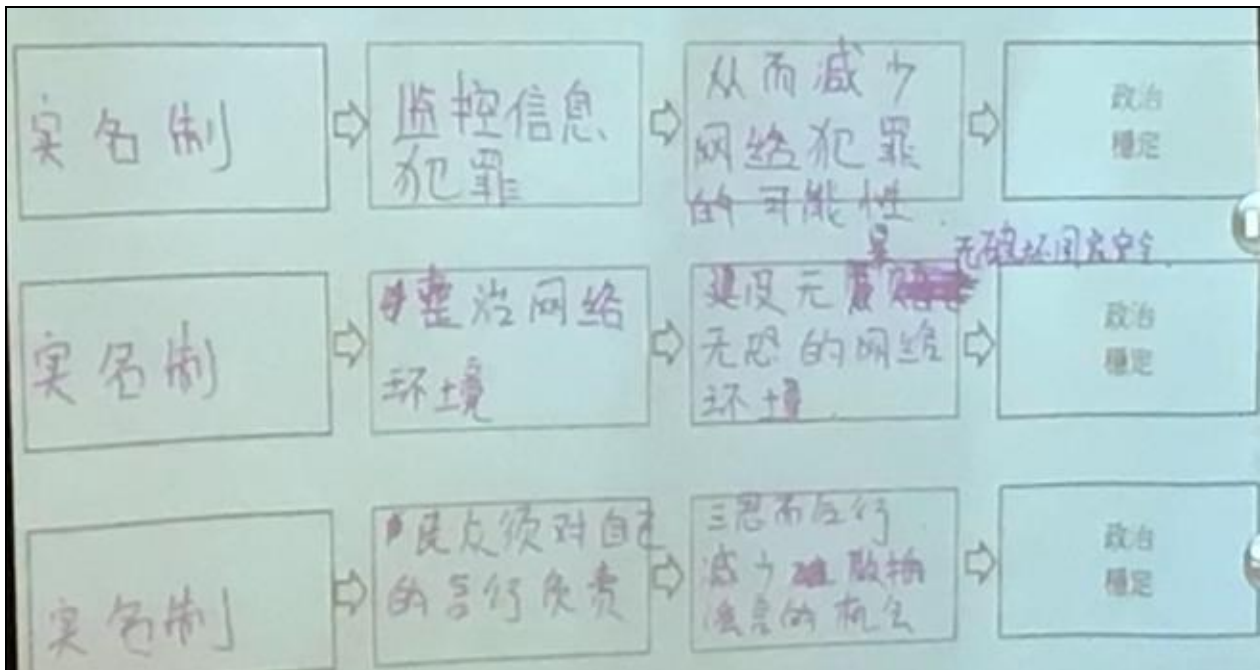 实名制
监控信息
犯罪
从而减少
网络犯罪
的可能性.
政治
穩定
实名制
整治网络
环境
无破坏国家安全.
建设无
无恐的网络
环境.
政治
穩定
实名制
民众须对自己
的言行负责
三思而后行
减少 散播
谣言的机会
政治
穩定